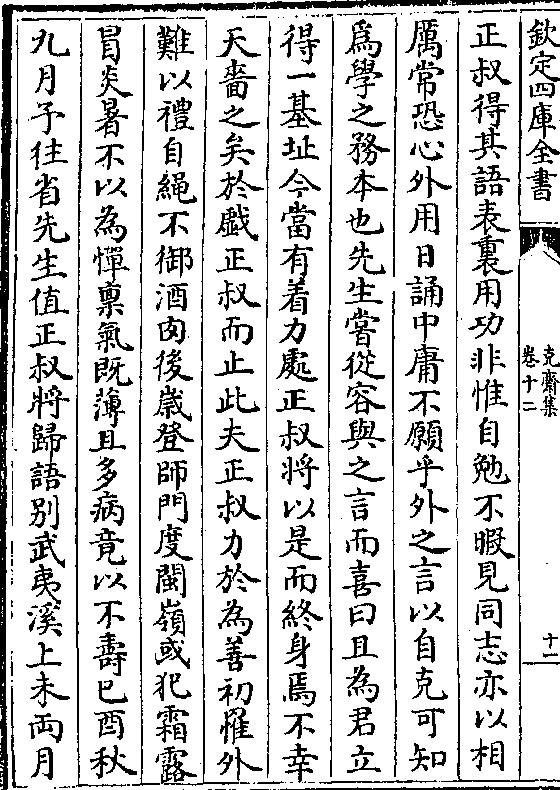 欽定四庫全書
克齋集
卷十二
十一
正叔得其語表裏用功非惟自勉不暇見同志亦以相
厲常恐心外用日誦中庸不願乎外之言以自克可知
爲學之務本也先生嘗從容與之言而喜曰且為君立
得一基址今當有着力處正叔將以是而終身焉不幸
天嗇之矣於戯正叔而止此夫正叔力於為善初罹外
難以禮自繩不御酒肉後嵗登師門度閩嶺或犯霜露
冒炎暑不以為憚禀氣既薄且多病竟以不壽已酉秋
九月予往省先生值正叔將歸語别武夷溪上未両月